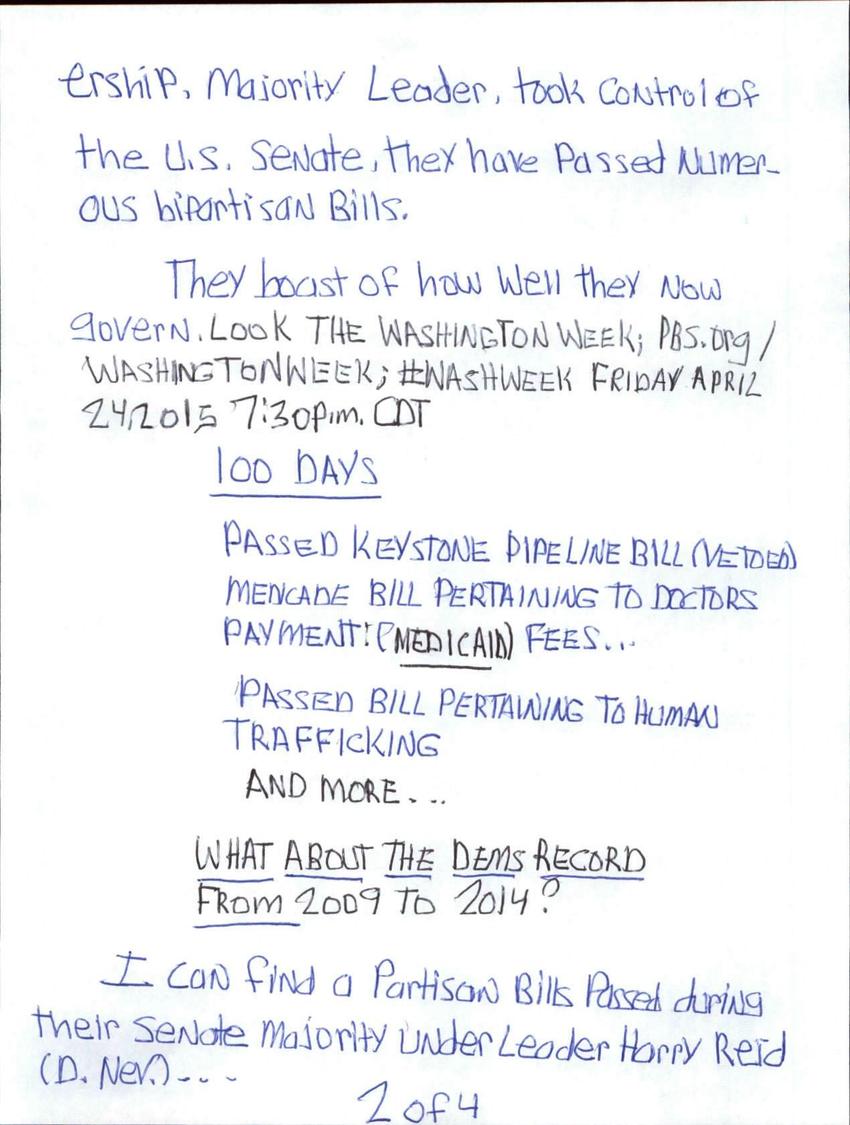 ership, Majority Leader, took control of
the U.S. Senate, they have Passed Numer-
ous bipartisan Bills.
They boast of how well they now
govern. LOOK THE WASHINGTON WEEK; PBS.org/
WASHINGTONWEEK; #WASHWEEK FRIDAY APRIL
24, 2015 7:30p.m. CDT
100 DAYS
PASSED KEYSTONE PIPELINE BILL (VETOED)
MENCADE BILL PERTAINING TO DOCTORS
PAYMENT! (MEDICAID) FEES...
PASSED BILL PERTAINING TO HUMAN
TRAFFICKING
AND MORE...
WHAT ABOUT THE DEMS RECORD
FROM 2009 TO 2014?
I can find a Partisan Bills Passed during
their Senate Majority under Leader Harry Reid
(D. Nev.)---
2 of 4